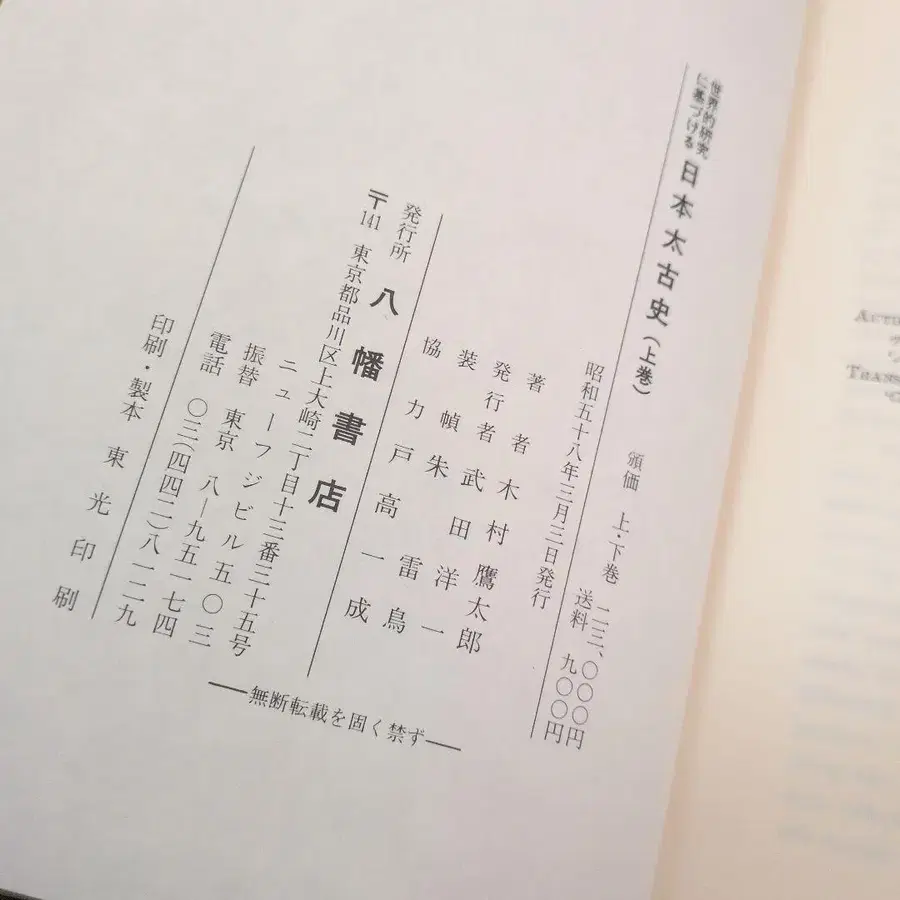 世界的研究
に基づける
日本太古史(上巻)
頒価 上・下巻 二三、〇〇〇円
送料 九〇〇円
昭和五十八年三月三日発行
著者 木村鷹太郎
発行者 武田洋一
装幀 朱雷鳥
協力 戸高一成
発行所 八幡書店
〒141 東京都品川区上大崎二丁目十三番三十五号
ニューフジビル五〇三
振替 東京 八―九五一七四
電話 〇三(四四二)八一二九
印刷・製本 東光印刷
―無断転載を固く禁ず―